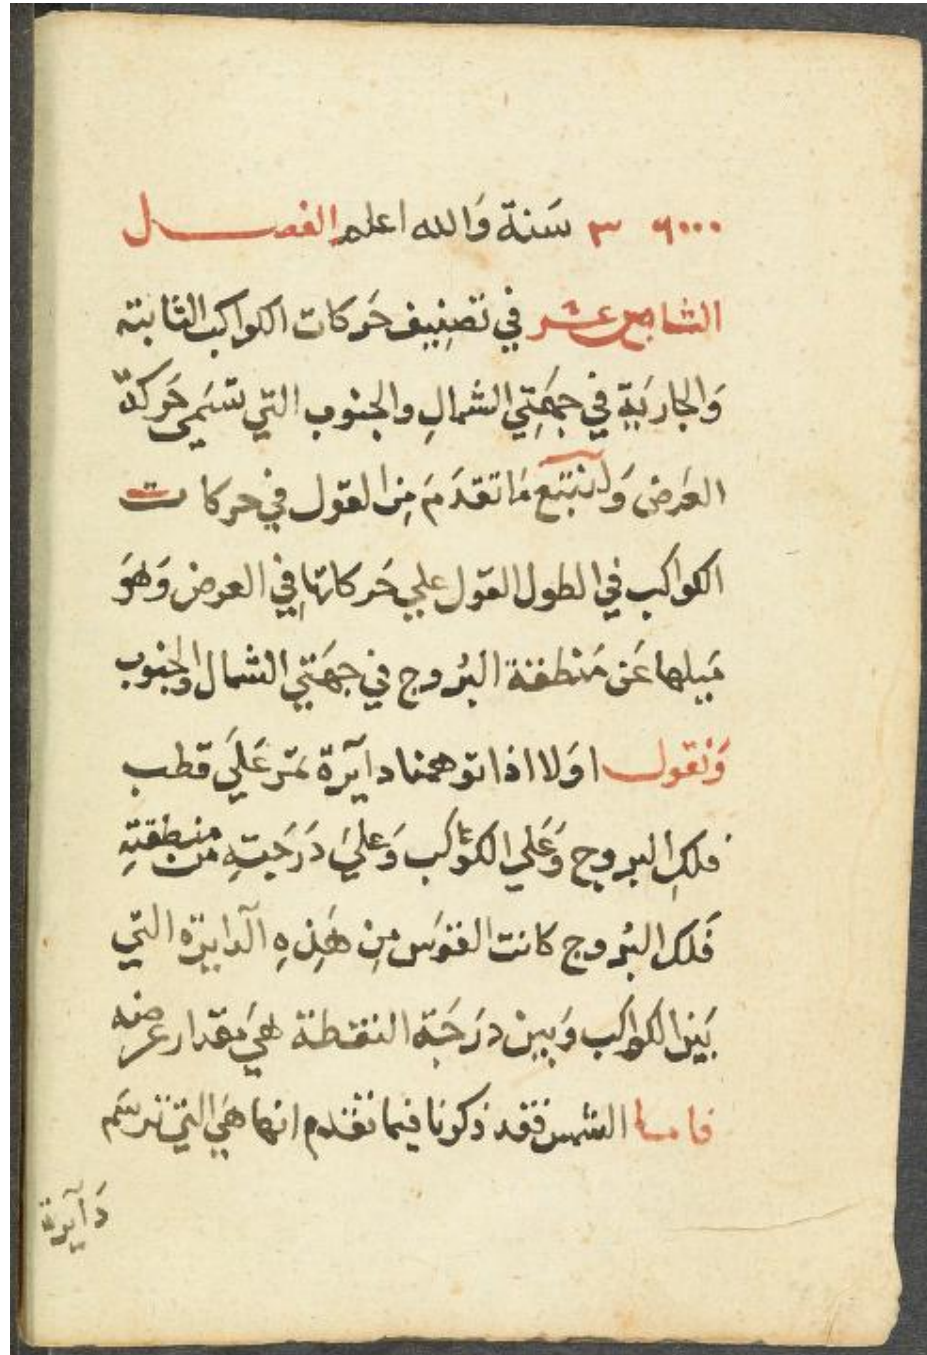 ٣٦٠٠٠ سَنة وَالله اعلم الفصل
الثامن عشر في تصنِيف حَركات الكواكب الثابته
وَالجاريَة في جهَتِي الشمالِ والجنوب التي تسَمي حَركة
العَرض وَلنتبع مَا تقدَمَ مِن القول في حركات
الكواكب في الطول القول علي حَركاتها في العرض وَهوَ
مَيلها عَن مَنطقة البُروج في جهَتي الشمال والجنوب
وَنقول اوَلا اذا توهمنا دآيرة تمر عَلَي قطب
فلكِ البروج وَعَلي الكوَاكب وَعليَ دَرَجتهِ من منطقتهِ
فَلك البُروج كانت القوَس مِن هَذِهِ الدايرَة التي
بَين الكواكب وَبين درَجَة النقطة هيَ مقدار عرضه
فاما الشمس فقد ذكرنا فيما تقدم انها هَي التي ترسَم
دَآيرة